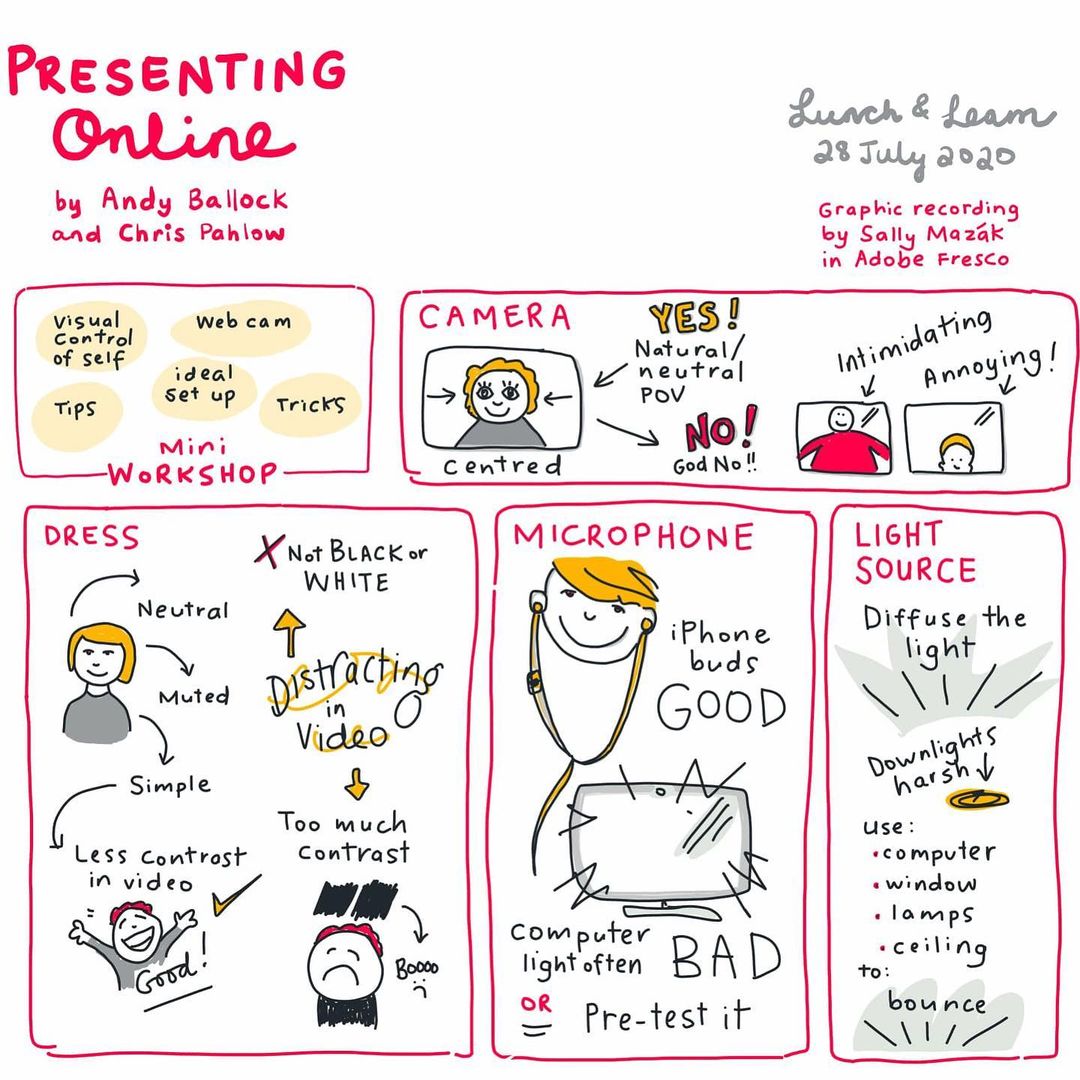 PRESENTING
Online
by Andy Ballock
and Chris Pahlow
Lunch & Learn
28 July 2020
Graphic recording
by Sally Mazák
in Adobe Fresco
Visual
Control
of self
Web cam
ideal
set up
Tips
Tricks
Mini
WORKSHOP
CAMERA
Centred
YES!
Natural/
neutral
POV
NO!
God No!!
Intimidating
Annoying!
DRESS
Neutral
Muted
Simple
Less contrast
in video
Good!
X Not BLACK or
WHITE
Distracting
in
Video
Too much
contrast
Boooo
MICROPHONE
iPhone
buds
GOOD
Computer
light often
BAD
OR
Pre-test it
LIGHT
SOURCE
Diffuse the
light
Downlights
harsh
use:
• computer
• window
• lamps
• ceiling
to:
bounce